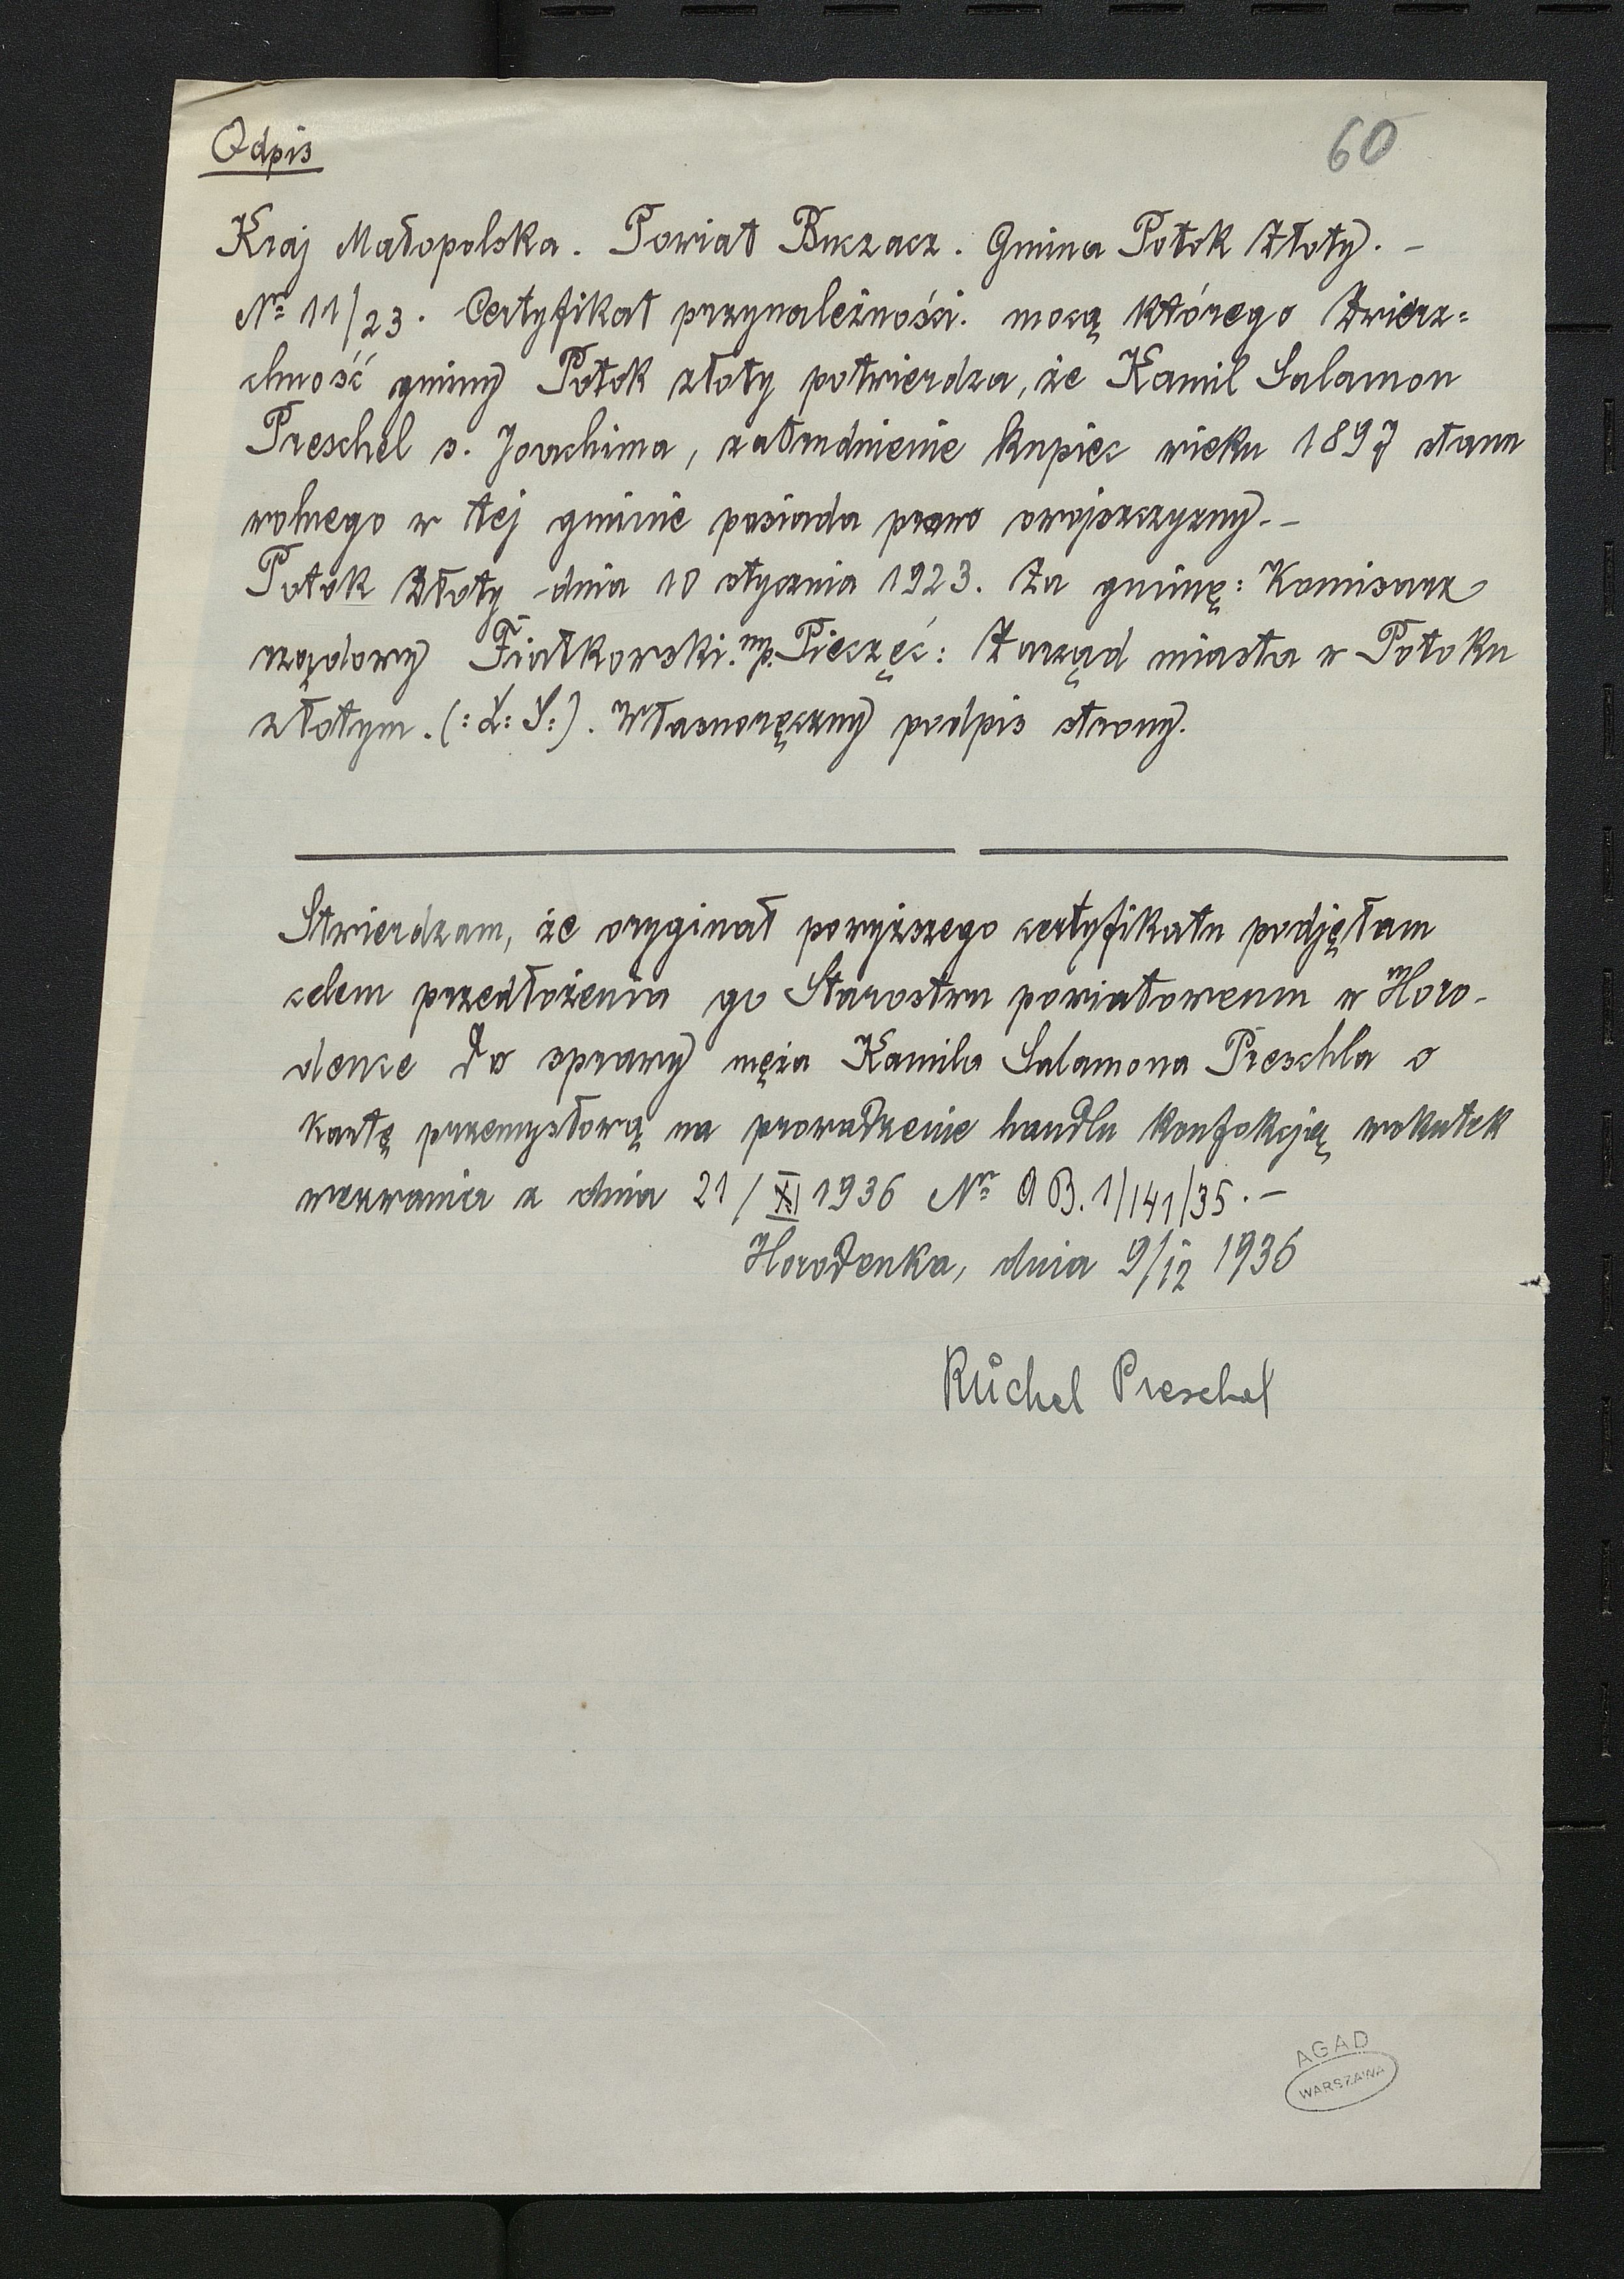 Odpis
60
Kraj Małopolska. Powiat Buczacz. Gmina Potok Złoty. -
Nr 11/23. Certyfikat przynależności. mocą którego Zwierz=
chność gminy Potok złoty potwierdza, że Kamil Salamon
Preschel s. Joachima, zatrudnienie kupiec wieku 1897 stanu
wolnego w tej gminie posiada prawo swojszczyzny. -
Potok Złoty dnia 10 stycznia 1923. Za gminę: Komisarz
rządowy Fiałkowski. mp. Pieczęć: Zarząd miasta w Potoku
złotym. (: L: S:). Własnoręczny podpis strony.
Stwierdzam, że oryginał powyższego certyfikatu podjęłam
celem przedłożenia go Starostwu powiatowemu w Horo-
dence do sprawy męża Kamila Salamona Preschla o
kartę przemysłową na prowadzenie handlu konfekcją wskutek
wezwania z dnia 21/XI 1936 Nr AB. 1/141/35. -
Horodenka, dnia 9/12 1936
Ruchel Preschel
AGAD
WARSZAWA